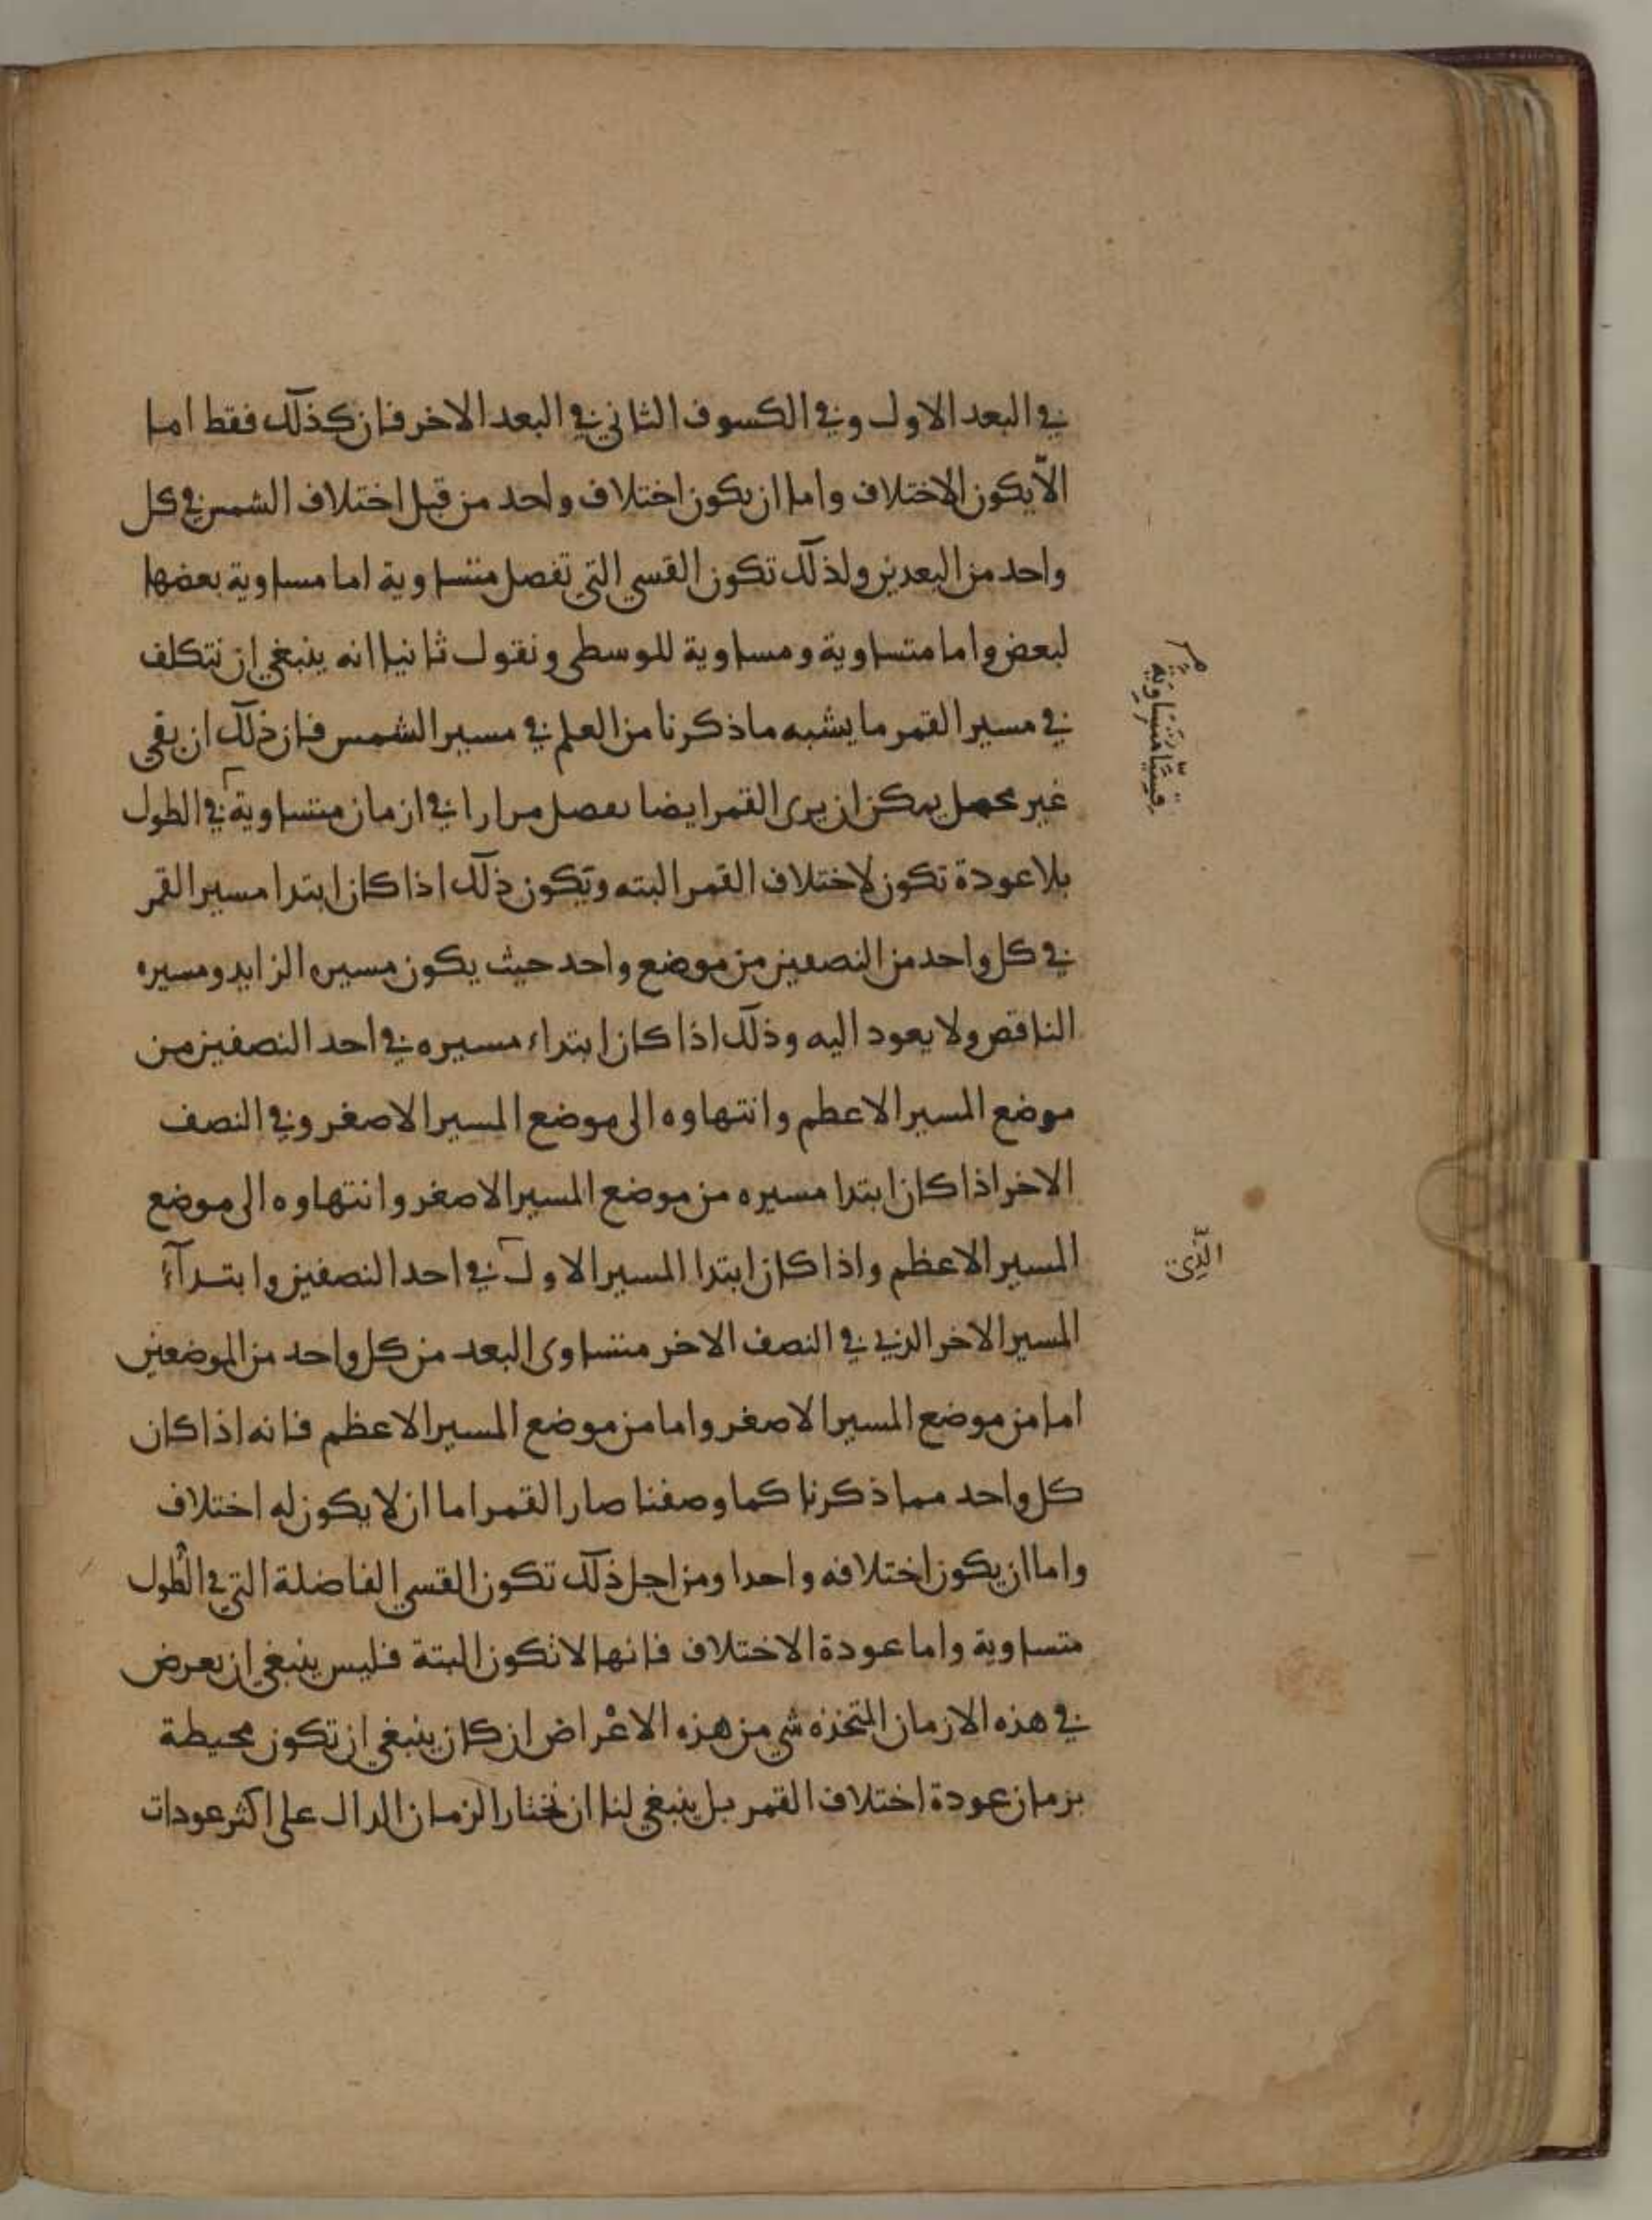 في البعد الاول وفي الكسوف الثاني في البعد الاخر فان كذلك فقط اما
الّا يكون الاختلاف واما ان يكون اختلاف واحد من قبل اختلاف الشمس في كل
واحد من البعدين ولذلك تكون القسي التي تفصل متساوية اما مساوية بعضها
لبعض واما متساوية ومساوية للوسطى ونقول ثانيا انه ينبغي ان نتكلف
في مسير القمر ما يشبه ما ذكرنا من العلم في مسير الشمس فان ذلك ان بقي
غير محصل يمكن ان يرى القمر ايضا يفصل مرارا في ازمان متساوية في الطول
قسيّا متساوية
بلا عودة تكون لاختلاف القمر البته وتكون ذلك اذا كان ابتدا مسير القمر
في كل واحد من النصفين من موضع واحد حيث يكون مسيره الزايد ومسيره
الناقص ولا يعود اليه وذلك اذا كان ابتداء مسيره في احد النصفين من
موضع المسير الاعطم وانتهاوه الى موضع المسير الاصغر وفي النصف
الاخر اذا كان ابتدا مسيره من موضع المسير الاصغر وانتهاوه الى موضع
المسير الاعظم واذا كان ابتدا المسير الاول في احد النصفين وابتدآء
الذّي
المسير الاخر الذي في النصف الاخر متساوى البعد من كل واحد من الموضعين
اما من موضع المسير الاصغر واما من موضع المسير الاعظم فانه اذا كان
كل واحد مما ذكرنا كما وصفنا صار القمر اما ان لا يكون له اختلاف
واما ان يكون اختلافه واحدا ومن اجل ذلك تكون القسي الفاضلة التي في الطول
متساوية واما عودة الاختلاف فانها لا تكون البتة فليس ينبغي ان يعرض
في هذه الازمان المتخذه شي من هذه الاعراض ان كان ينبغي ان تكون محيطة
بزمان عودة اختلاف القمر بل ينبغي لنا ان نختار الزمان الدال على اكثر عودات